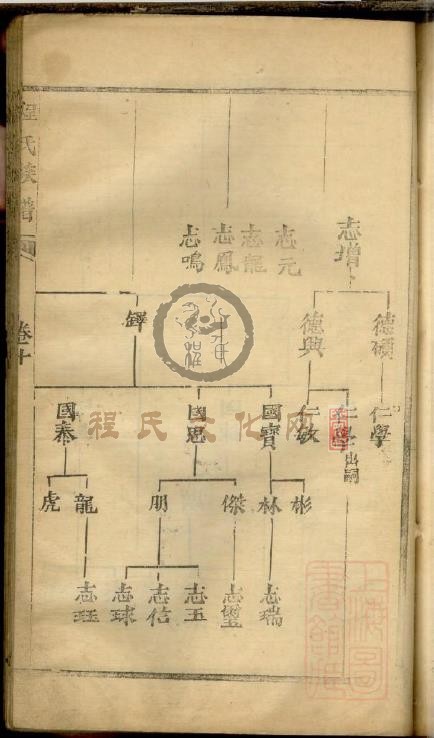 志增
志元
志龍
志鳳
志鳴
德碩
德興
鐸
仁學
仁學出嗣
仁敏
國寶
國思
國泰
彬
林
傑
朋
龍
虎
志瑞
志璽
志玉
志信
志球
志珏
程氏族譜
卷十
程氏文化网